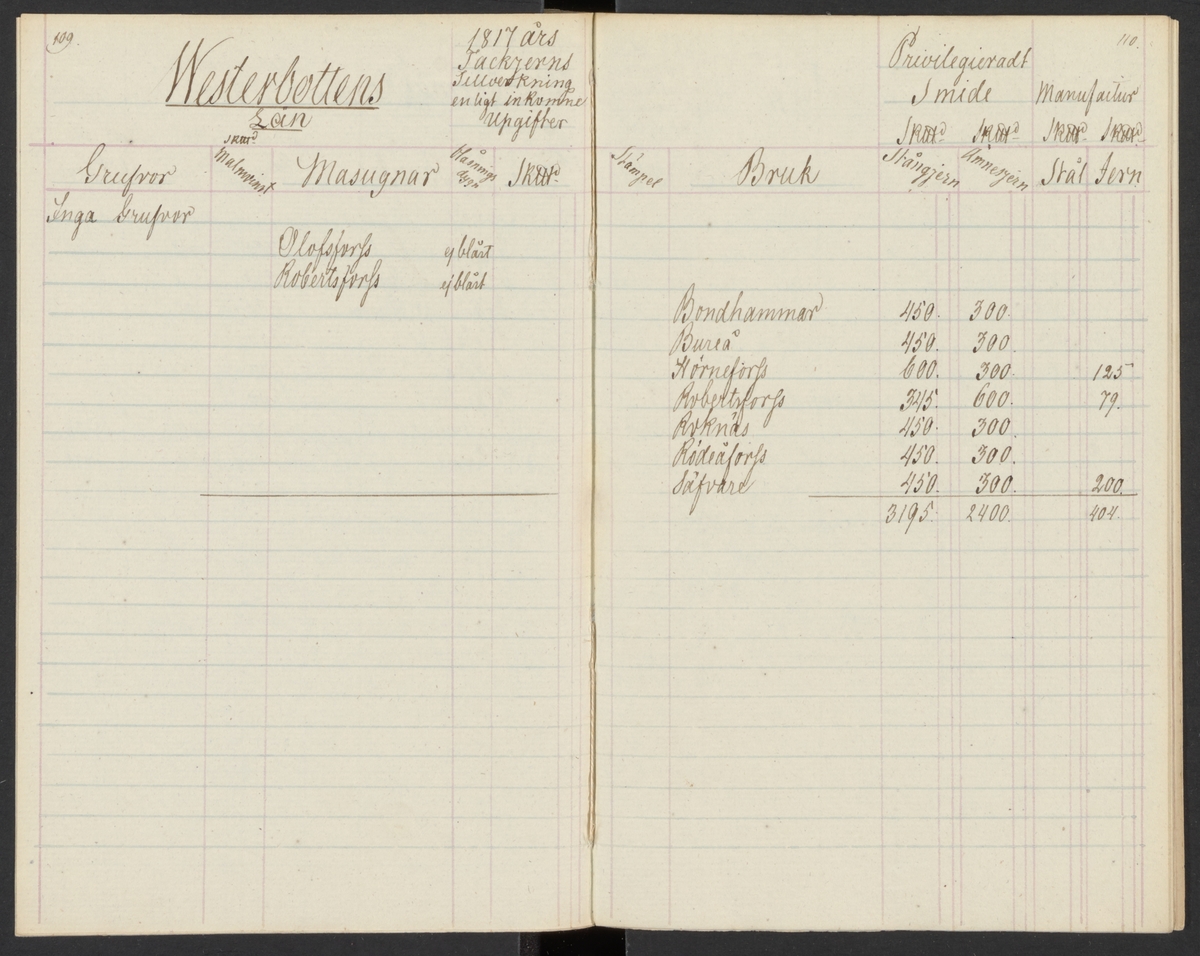 109.
Westerbottens
Län
1817 års
Tackjerns
Tillverkning
enligt inkomne
Upgifter
Grufvor
Malmvinst
Masugnar
Blåsnings
dygn
Inga Grufvor
Olofsforss ej blåst
Robertsforss ej blåst
110.
Privilegieradt
Smide Manufactur
Stämpel Bruk Stångjern Ämnesjern Stål Jern
Bondhammar 450. 300.
Bureå 450. 300
Hörneforss 600. 300. 125
Robertsforss 345. 600. 79.
Roknäs 450. 300.
Rödeåforss 450. 300.
Säfvare 450. 300. 200.
3195. 2400. 404.